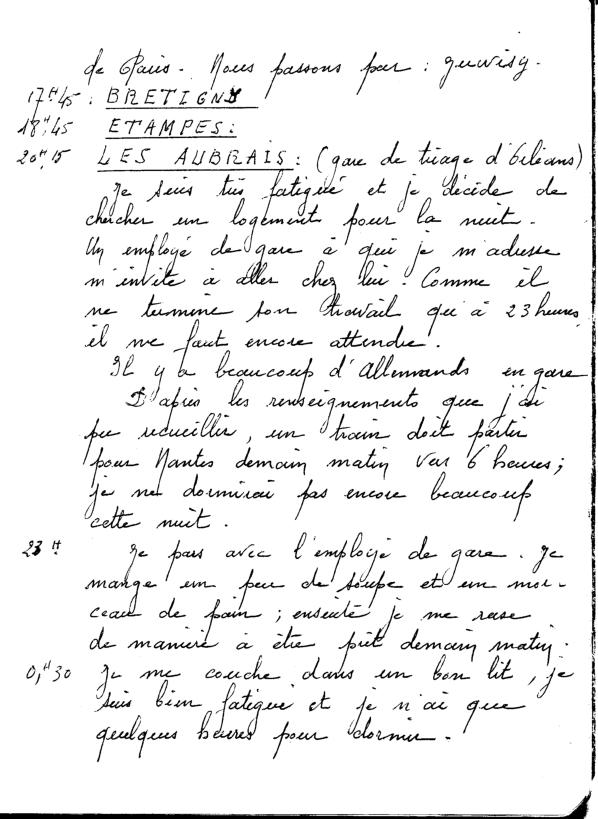 de Paris. Nous passons par : Juvisy.
17H45 : BRETIGNY
18H,45 ETAMPES :
20H,15 LES AUBRAIS : (gare de triage d'Orléans)
Je suis très fatigué et je décide de
chercher un logement pour la nuit.
Un employé de gare à qui je m'adresse
m'invite à aller chez lui. Comme il
ne termine son travail qu'à 23 heures
il me faut encore attendre.
Il y a beaucoup d'Allemands en gare
D'après les renseignements que j'ai
pu recueillir, un train doit partir
pour Nantes demain matin vers 6 heures ;
je ne dormirai pas encore beaucoup
cette nuit.
23H Je pars avec l'employé de gare. Je
mange un peu de soupe et un mor-
ceau de pain ; ensuite je me rase
de manière à être prêt demain matin.
0,H30 Je me couche dans un bon lit, je
suis bien fatigué et je n'ai que
quelques heures pour dormir.